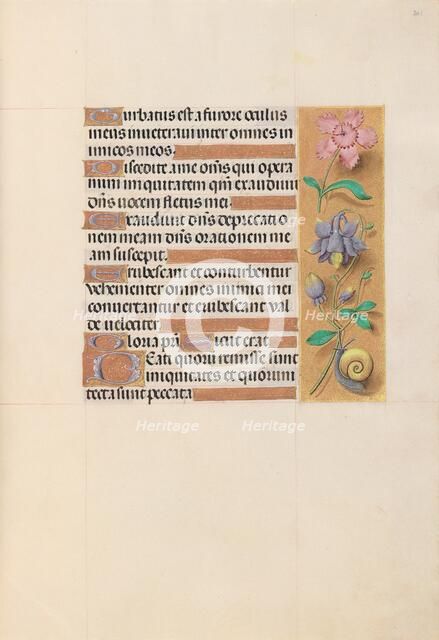 201
Turbatus est a furore oculus
meus inveteravi inter omnes in
imicos meos.
Discedite a me om̄s qui opera
mini iniquitatem qm̄ exaudivit
dn̄s vocem fletus mei.
Exaudivit dn̄s deprecatio
nem meam dn̄s orationem me
am suscepit.
Erubescant et conturbentur
vehementer omnes inimici mei
convertantur et erubescant val
de velociter.
Gloria pr̄i Sicut erat
Beati quorum remisse sunt
iniquitates et quorum
tecta sunt peccata
Heritage Heritage Heritage
Heritage Heritage Heritage
Heritage Heritage Heritage